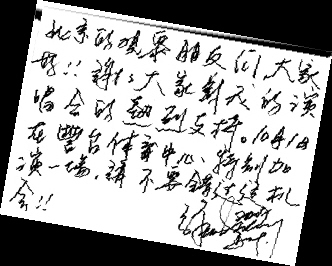 北京的歌迷朋友们，大家
好！！谢谢大家对我的演
唱会的热烈支持。10月1日
在丰台体育中心，特别加
演一场，请不要错过这机
会！！